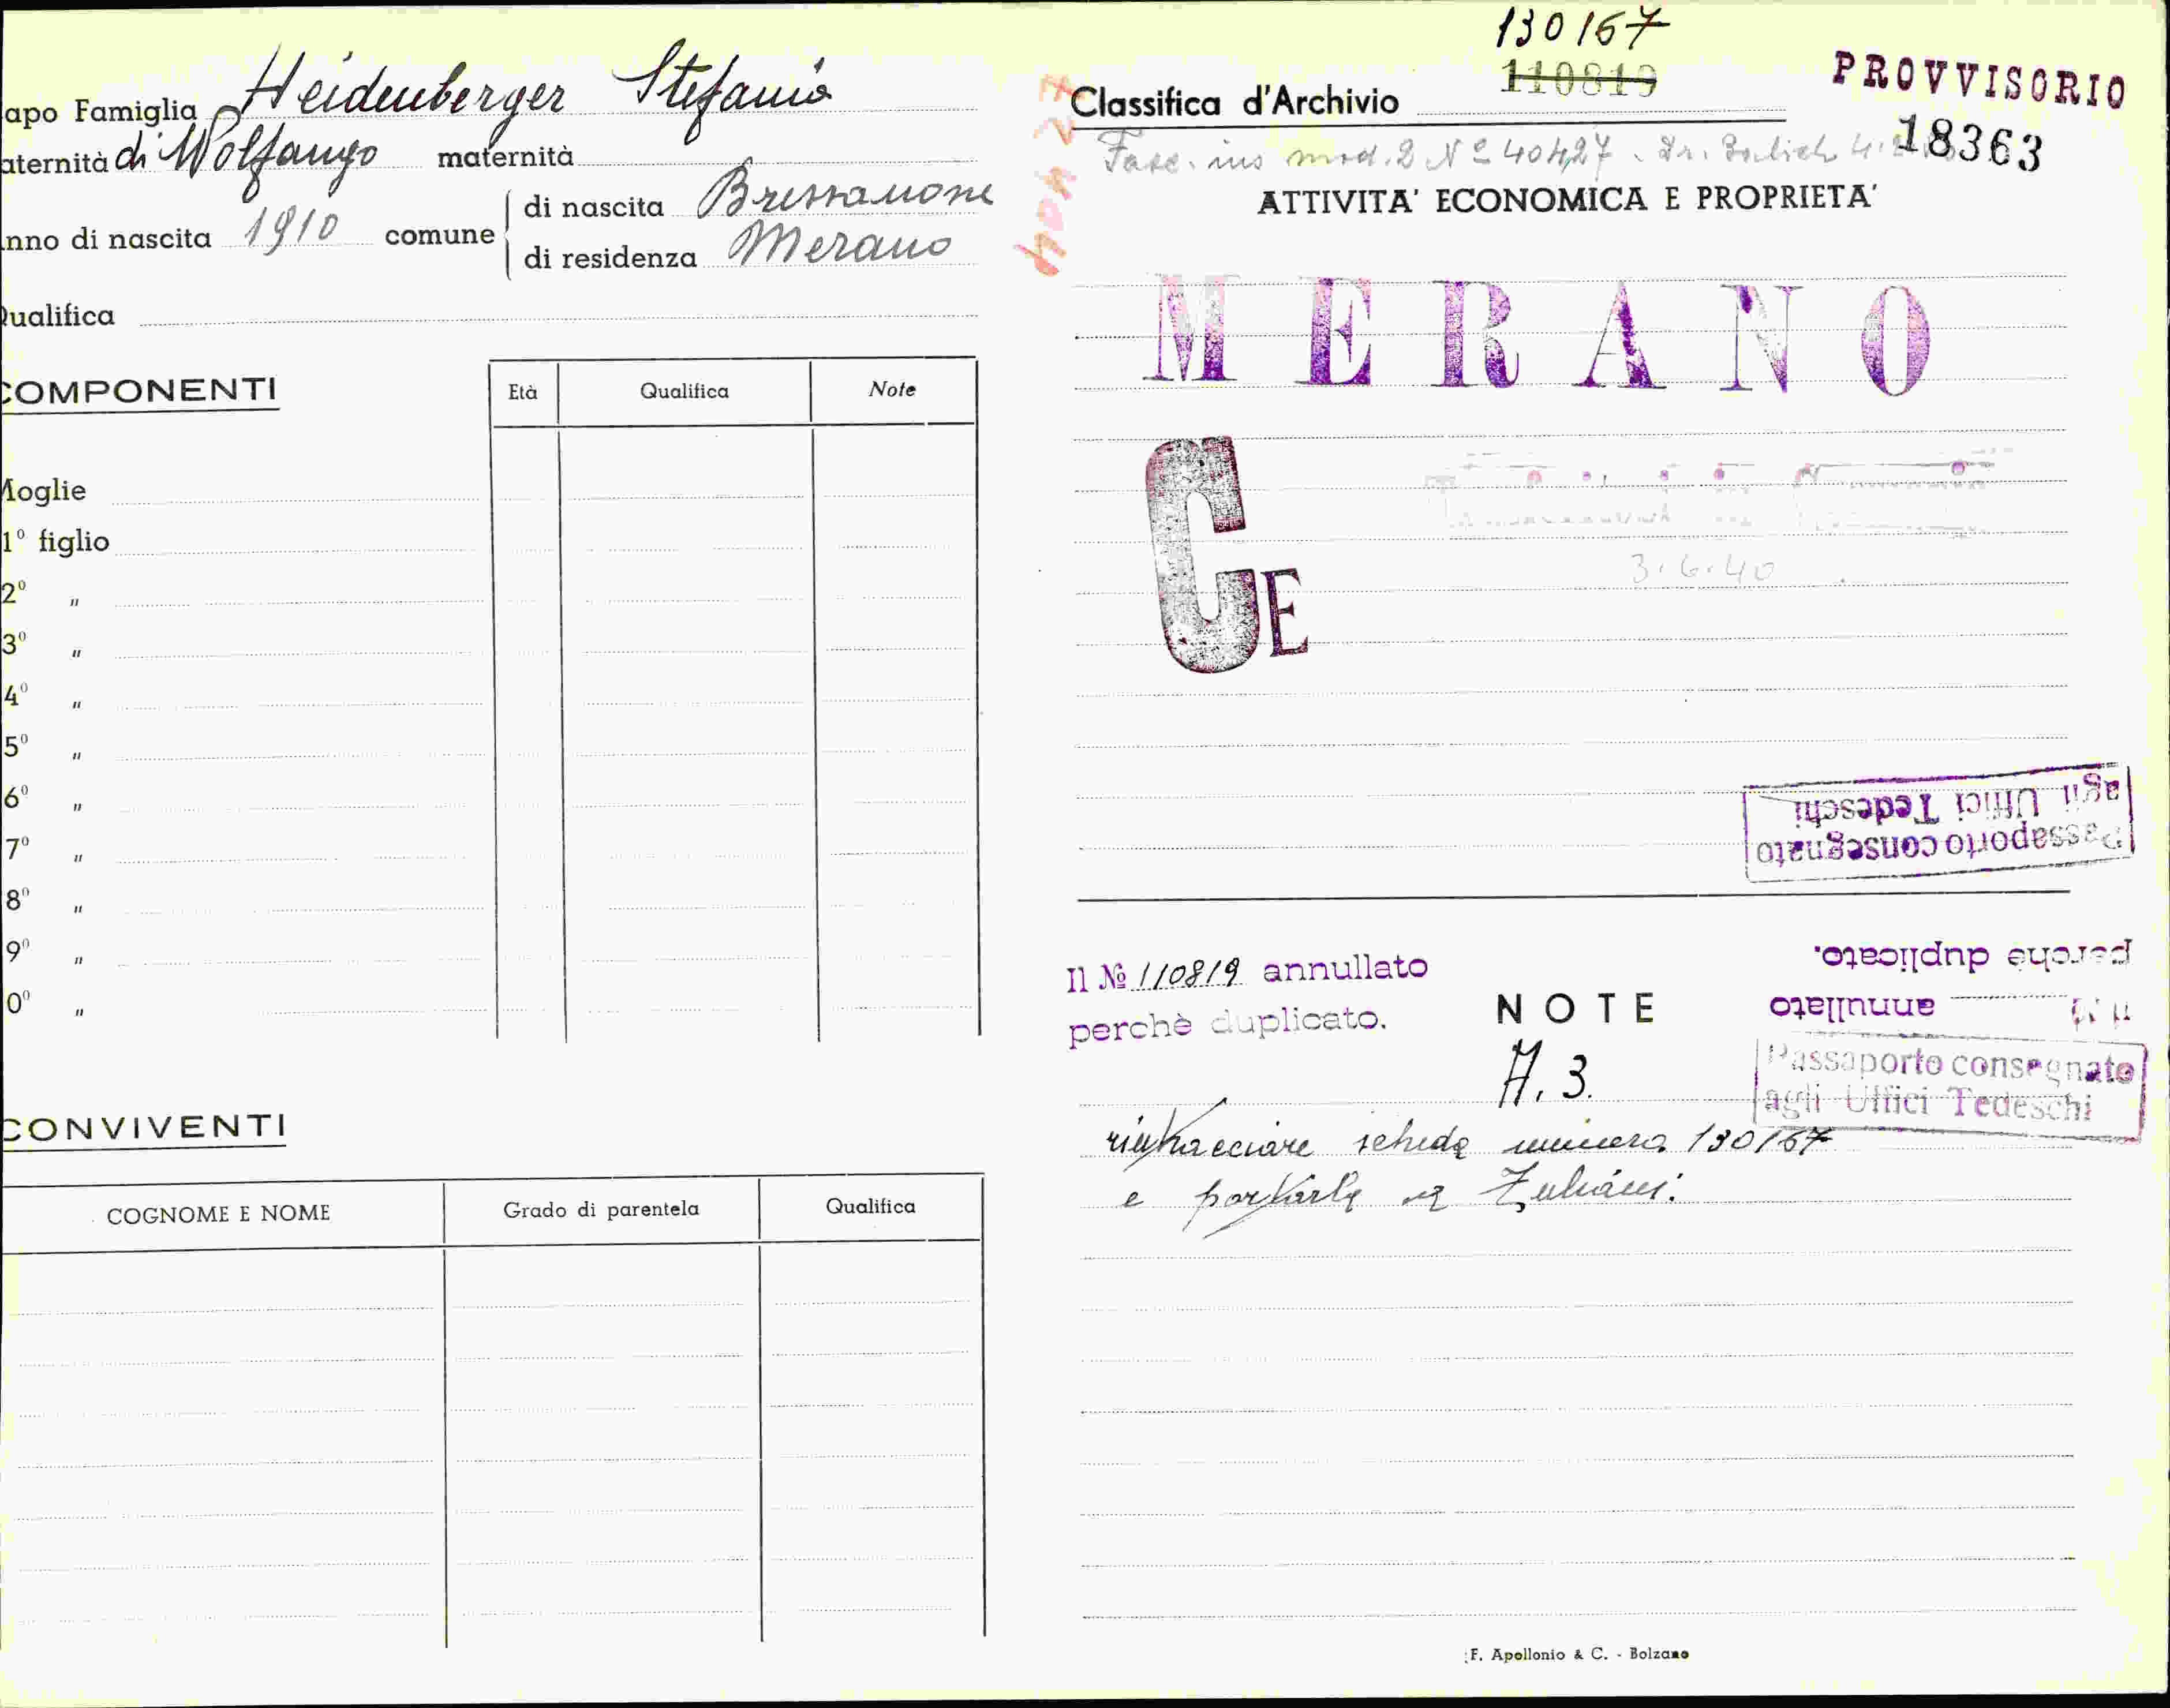 apo Famiglia Heidenberger Stefania
aternità di Wolfango maternità
nno di nascita 1910 comune
di nascita Bressanone
di residenza Merano
Qualifica
COMPONENTI
Età Qualifica Note
Moglie
1° figlio
2° "
3° "
4° "
5° "
6° "
7° "
8° "
9° "
0° "
CONVIVENTI
COGNOME E NOME Grado di parentela Qualifica
130167
110819
Classifica d'Archivio
PROVVISORIO
18363
Fasc. ins mod. 2 Nº 40427
ATTIVITA' ECONOMICA E PROPRIETA'
MERANO
CE
3.6.40
Passaporto consegnato
agli Uffici Tedeschi
Il Nº 110819 annullato
perchè duplicato.
Il Nº annullato
perchè duplicato.
NOTE
A. 3.
Passaporto consegnato
agli Uffici Tedeschi
rintracciare scheda numero 130167
e portarla a Zuliani.
F. Apollonio & C. - Bolzano